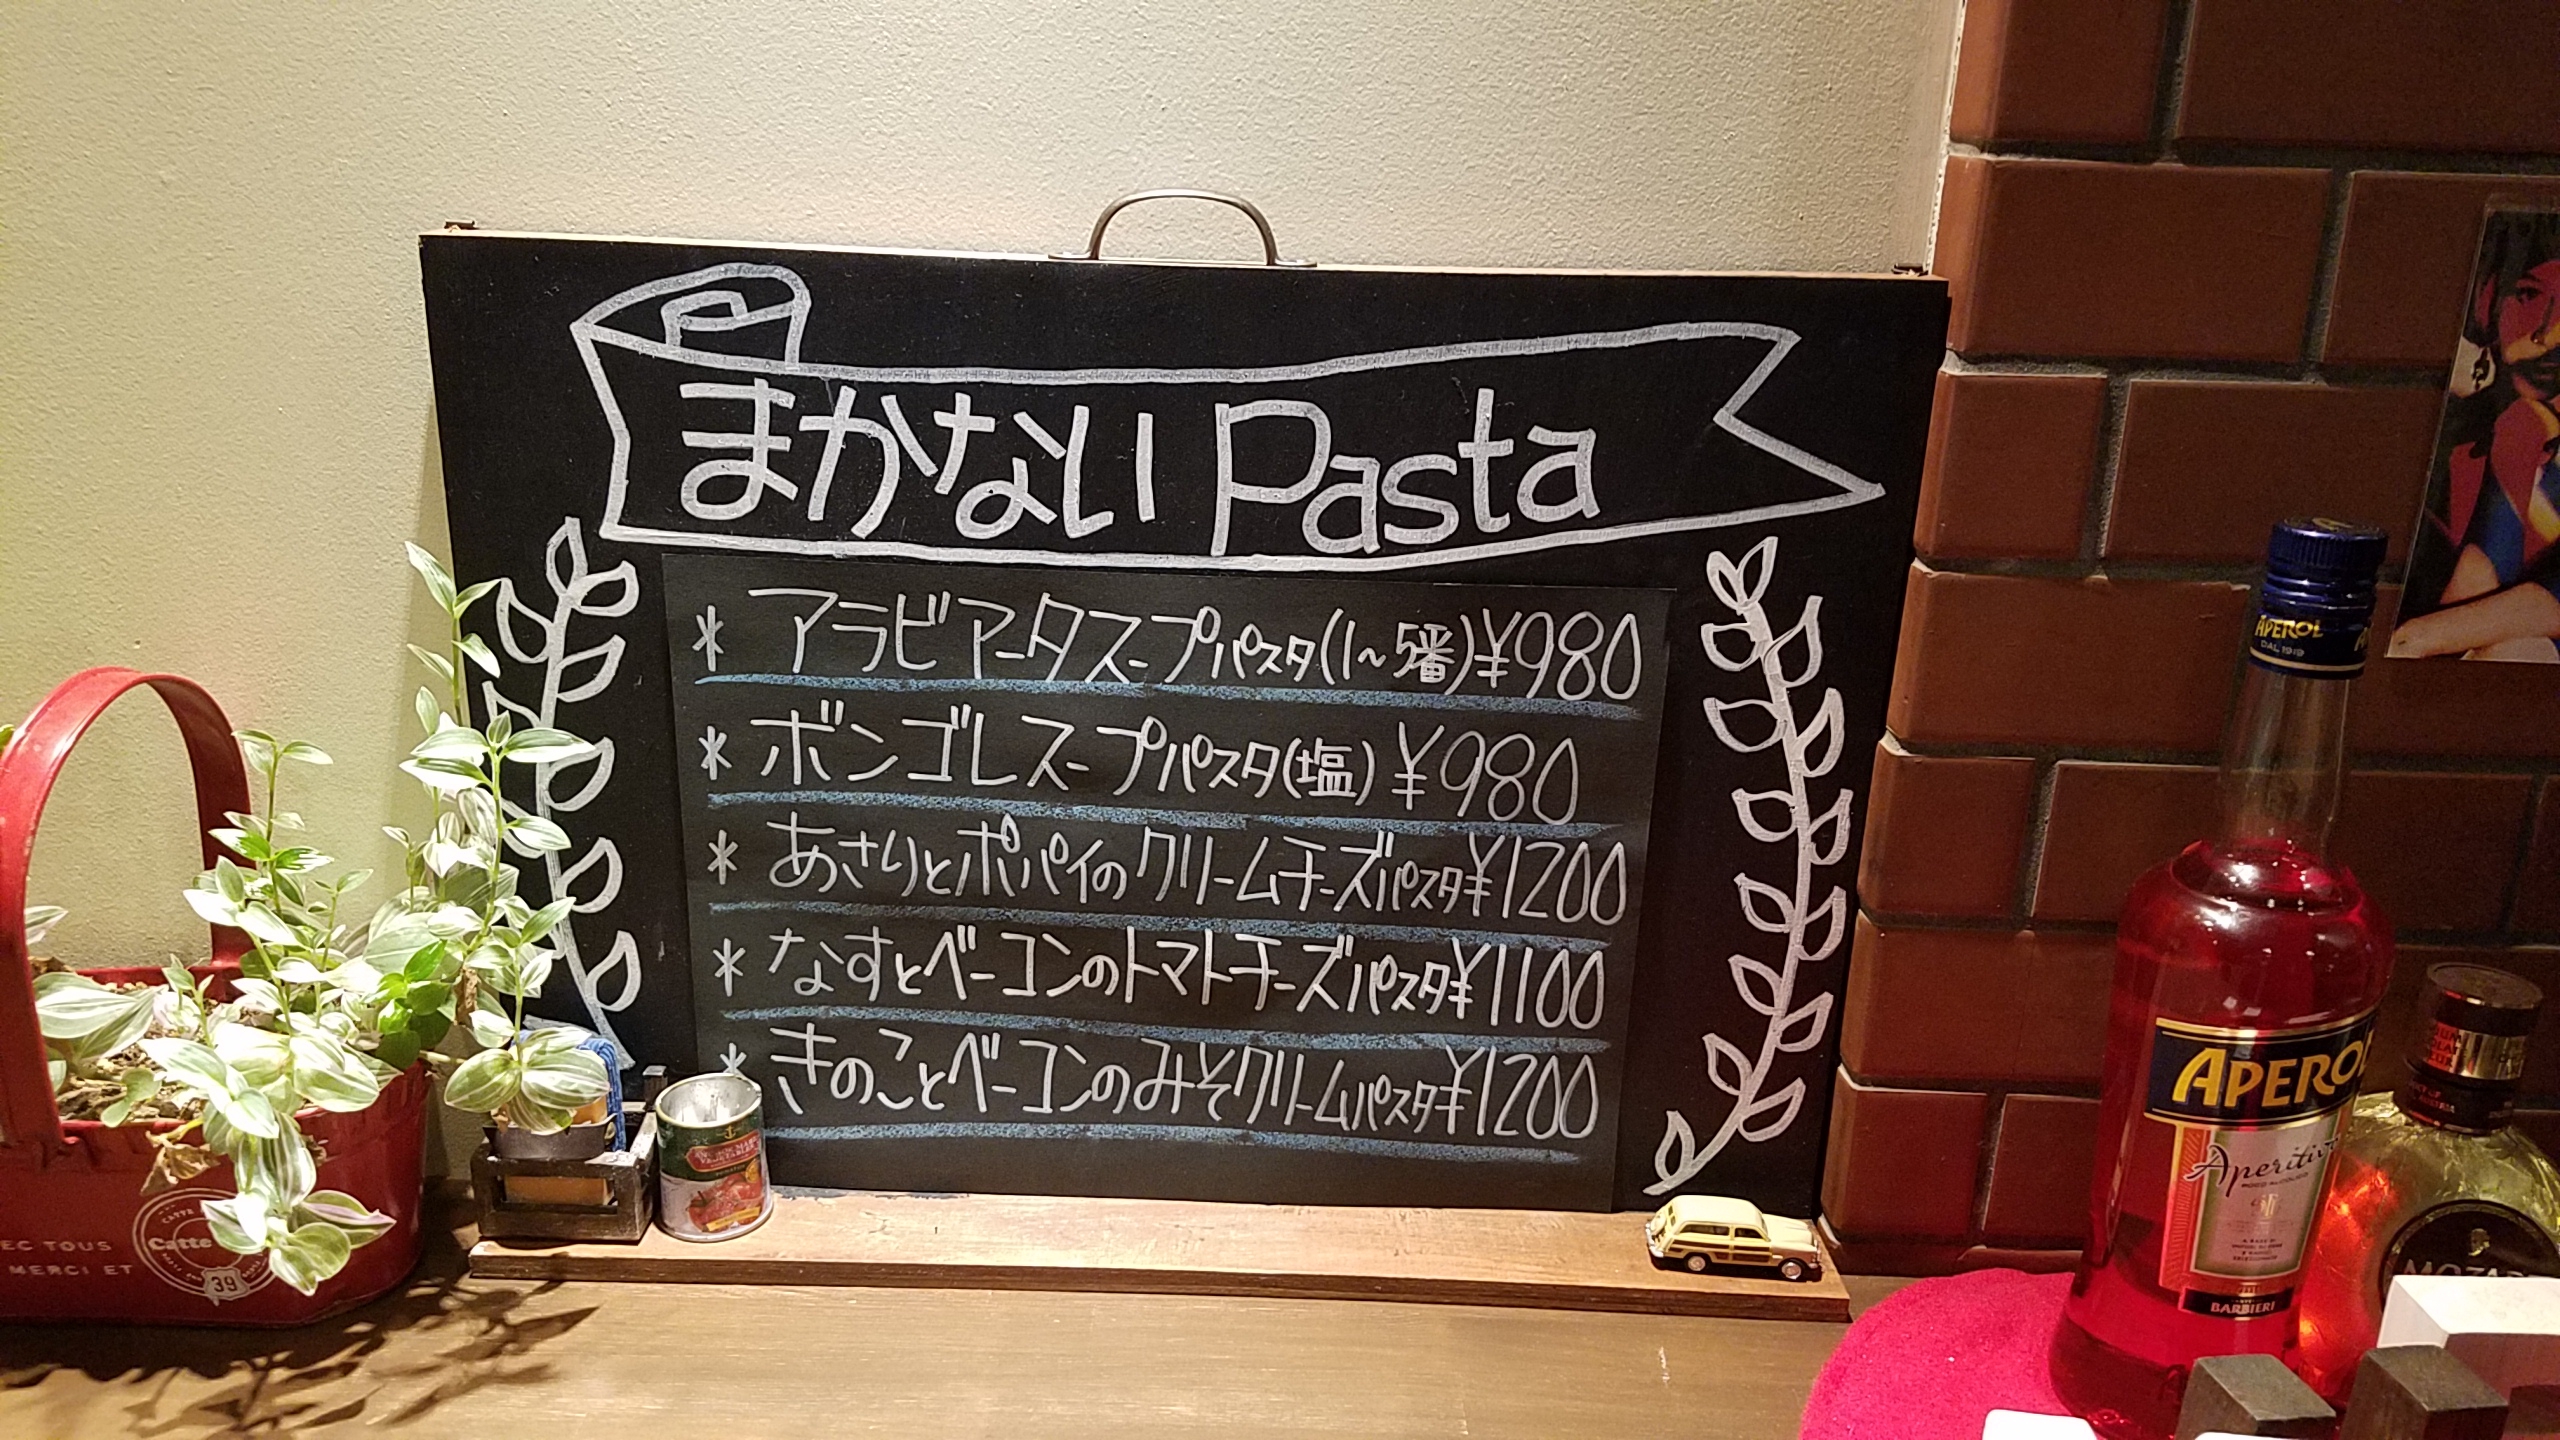 まかない Pasta
* アラビアータスープパスタ(1~5番)¥980
* ボンゴレスープパスタ(塩) ¥980
* あさりとポパイのクリームチーズパスタ¥1200
* なすとベーコンのトマトチーズパスタ¥1100
* きのことベーコンのみそクリームパスタ¥1200
APEROL
DAL 1919
APEROL
Aperitivo
BARBIERI
EC TOUS
MERCI ET
39